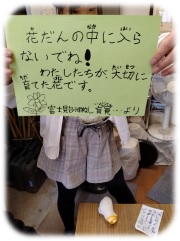 花だんの中に入ら
ないでね!
わたしたちが、大切に
育てた花です。
より